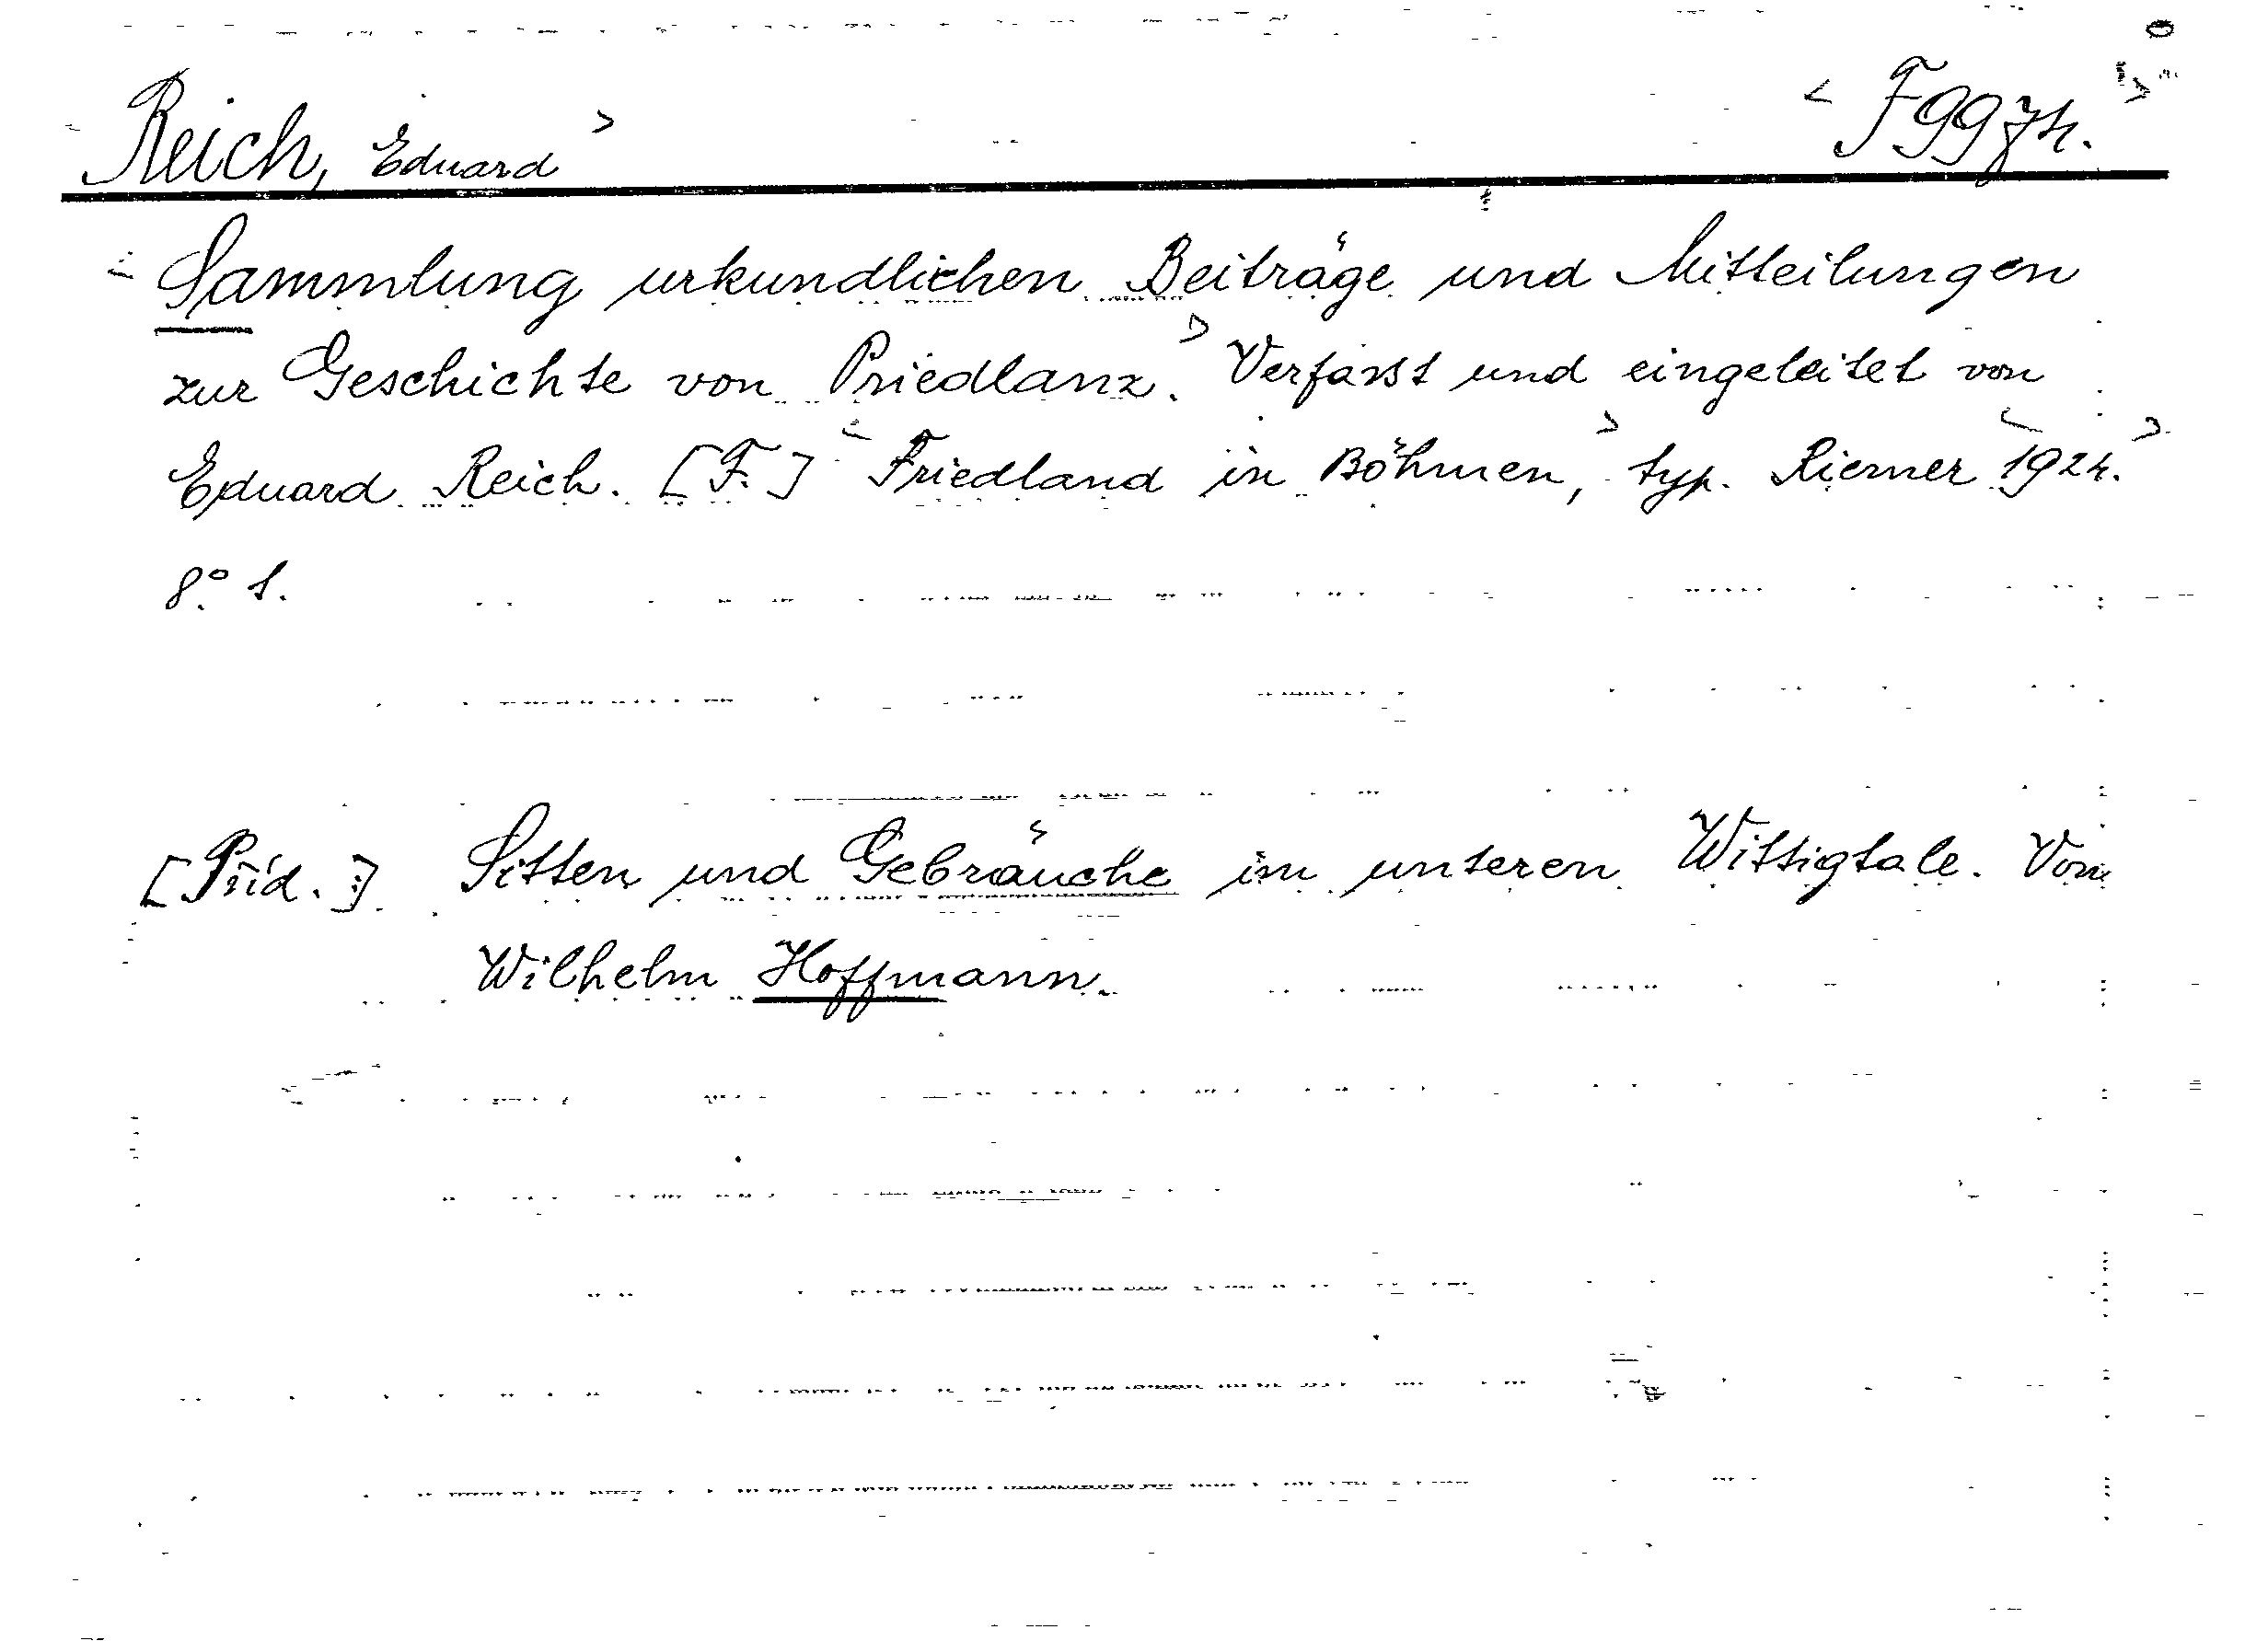 Reich, Eduard > < F 9974. >
< Sammlung urkundlichen Beiträge und Mitteilungen
zur Geschichte von Priedlanz. > Verfasst und eingeleitet von
Eduard Reich. [F.] < Friedland in Böhmen, > typ. Riemer < 1924. >
8°. 1.
[Příd.:] Sitten und Gebräuche im unseren Wittigtale. Von
Wilhelm Hoffmann.